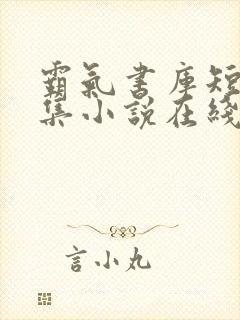 霸氣書庫短
集小說在綫
言小丸